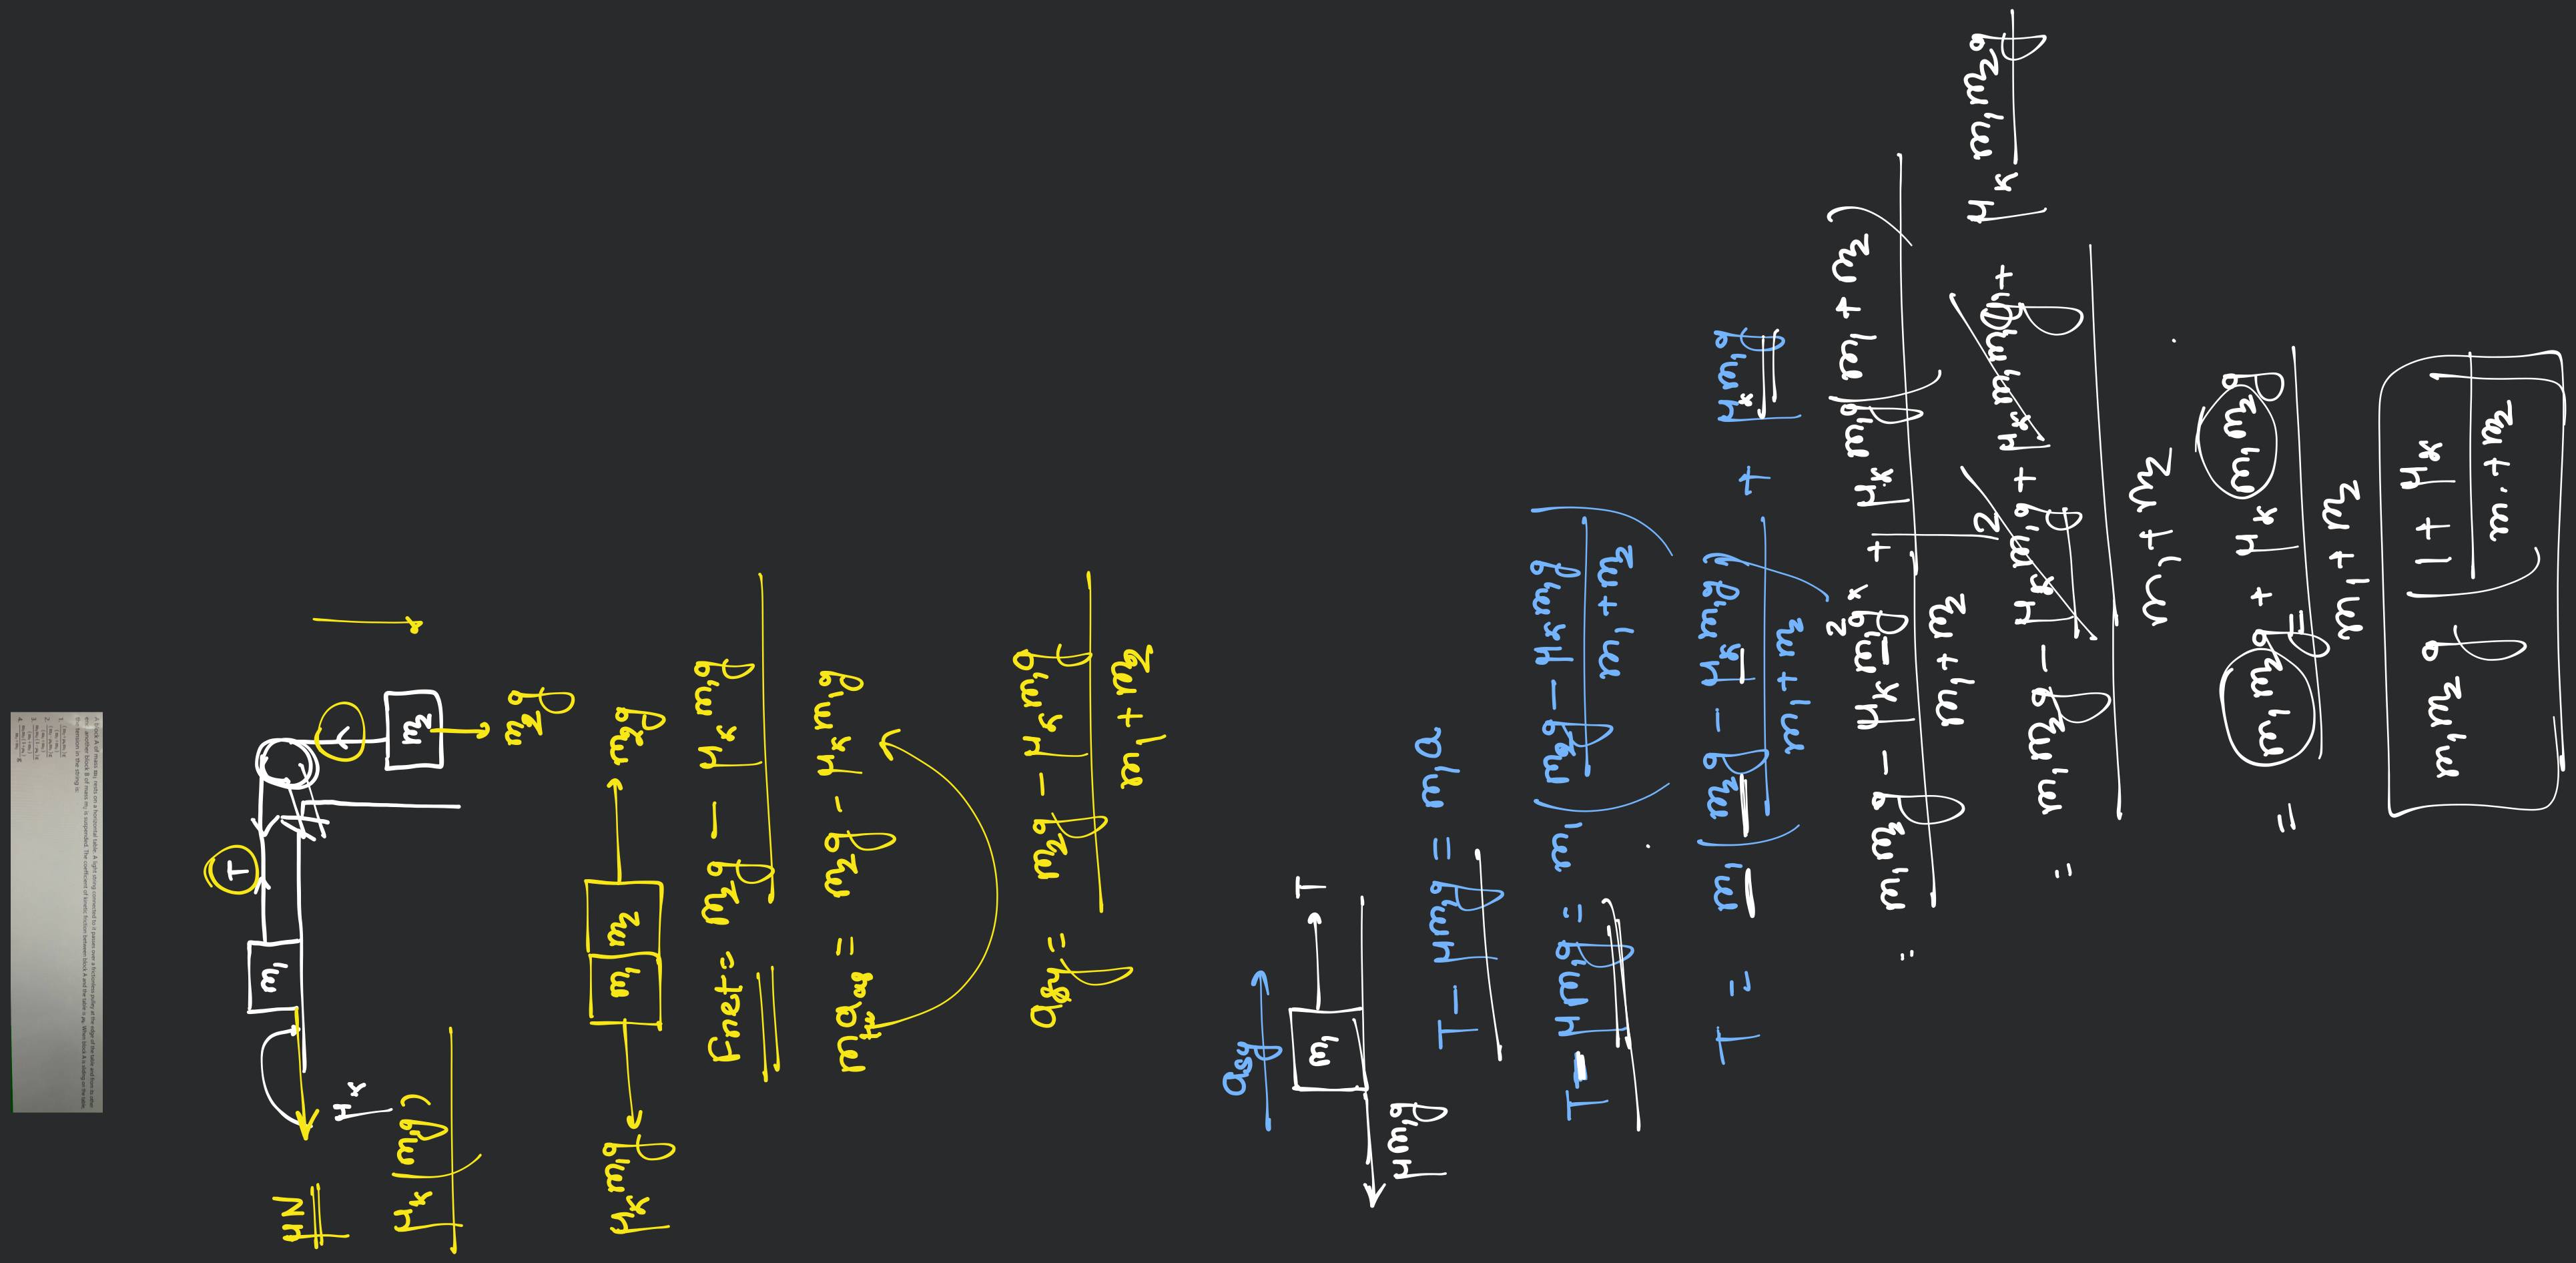 A block A of mass m₁ rests on a horizontal table. A light string connected to it passes over a frictionless pulley at the edge of the table and from its other
end another block B of mass m₂ is suspended. The coefficient of kinetic friction between block A and the table is μₖ. When block A is sliding on the table,
the tension in the string is:
T
m₁
m₂
m₂g
μN
μₖ
μₖ(m₁g)
m₂g
m₂
m₁
μₖm₁g
Fnet = m₂g − μₖm₁g
m₂g − μₖm₁g
asy = m₂g − μₖm₁g
m₁+m₂
asy
T
m₁
μm₁g
T − μm₁g = m₁a
T − μm₁g = m₁(m₂g − μₖm₁g)
m₁+m₂
T = m₁(m₂g − μₖm₁g) + μₖm₁g
m₁+m₂
= m₁m₂g − μₖm₁²g + μₖm₁g(m₁+m₂)
m₁+m₂
= m₁m₂g − μₖm₁²g + μₖm₁²g + μₖm₁m₂g
m₁+m₂
= m₁m₂g + μₖm₁m₂g
m₁+m₂
m₁m₂g(1+μₖ)
m₁+m₂